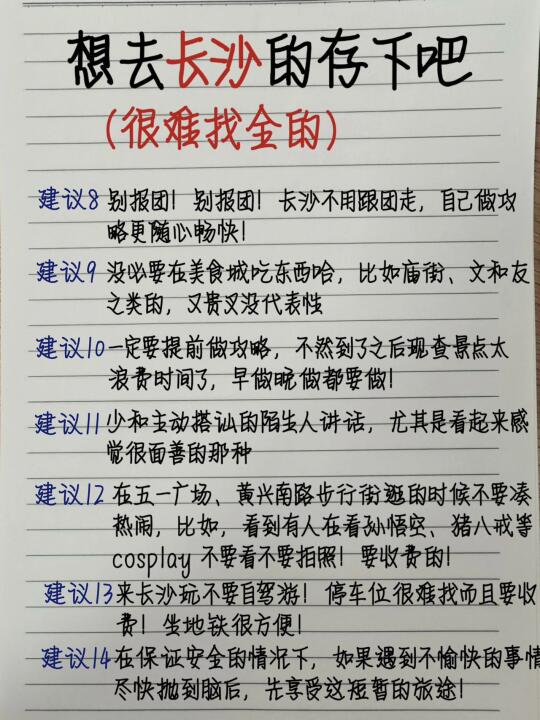 想去长沙的存下吧
(很难找全的)
建议8 别报团！别报团！长沙不用跟团走，自己做攻
略更随心畅快！
建议9 没必要在美食城吃东西哈，比如庙街、文和友
之类的，又贵又没代表性
建议10 一定要提前做攻略，不然到了之后现查景点太
浪费时间了，早做晚做都要做！
建议11 少和主动搭讪的陌生人讲话，尤其是看起来感
觉很面善的那种
建议12 在五一广场、黄兴南路步行街逛的时候不要凑
热闹，比如，看到有人在看孙悟空、猪八戒等
cosplay 不要看不要拍照！要收费的！
建议13 来长沙玩不要自驾游！停车位很难找而且要收
费！坐地铁很方便！
建议14 在保证安全的情况下，如果遇到不愉快的事情
尽快抛到脑后，先享受这短暂的旅途！